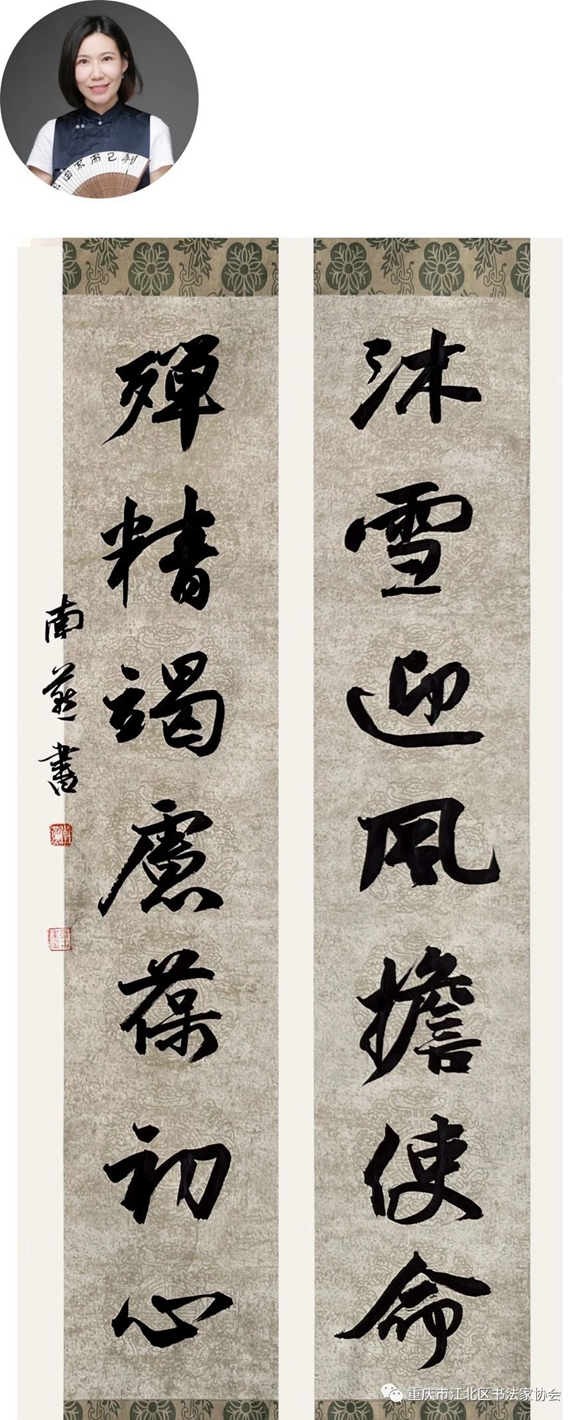 沐雪迎风擔使命
殫精竭慮葆初心
南燕書
重庆市江北区书法家协会